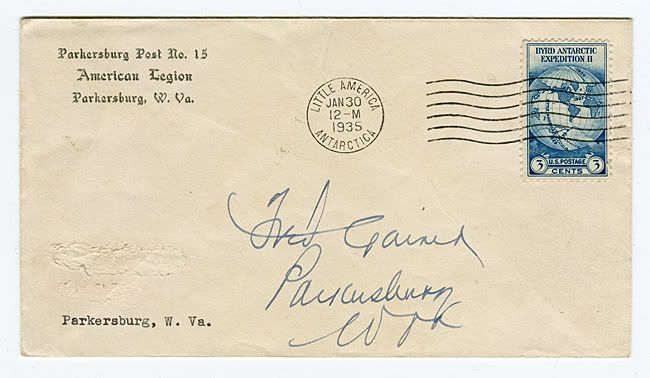 Parkersburg Post No. 15
American Legion
Parkersburg, W. Va.
LITTLE AMERICA
JAN 30
12-M
1935
ANTARCTICA
BYRD ANTARCTIC
EXPEDITION II
3 U.S. POSTAGE 3
CENTS
Parkersburg
Parkersburg, W. Va.